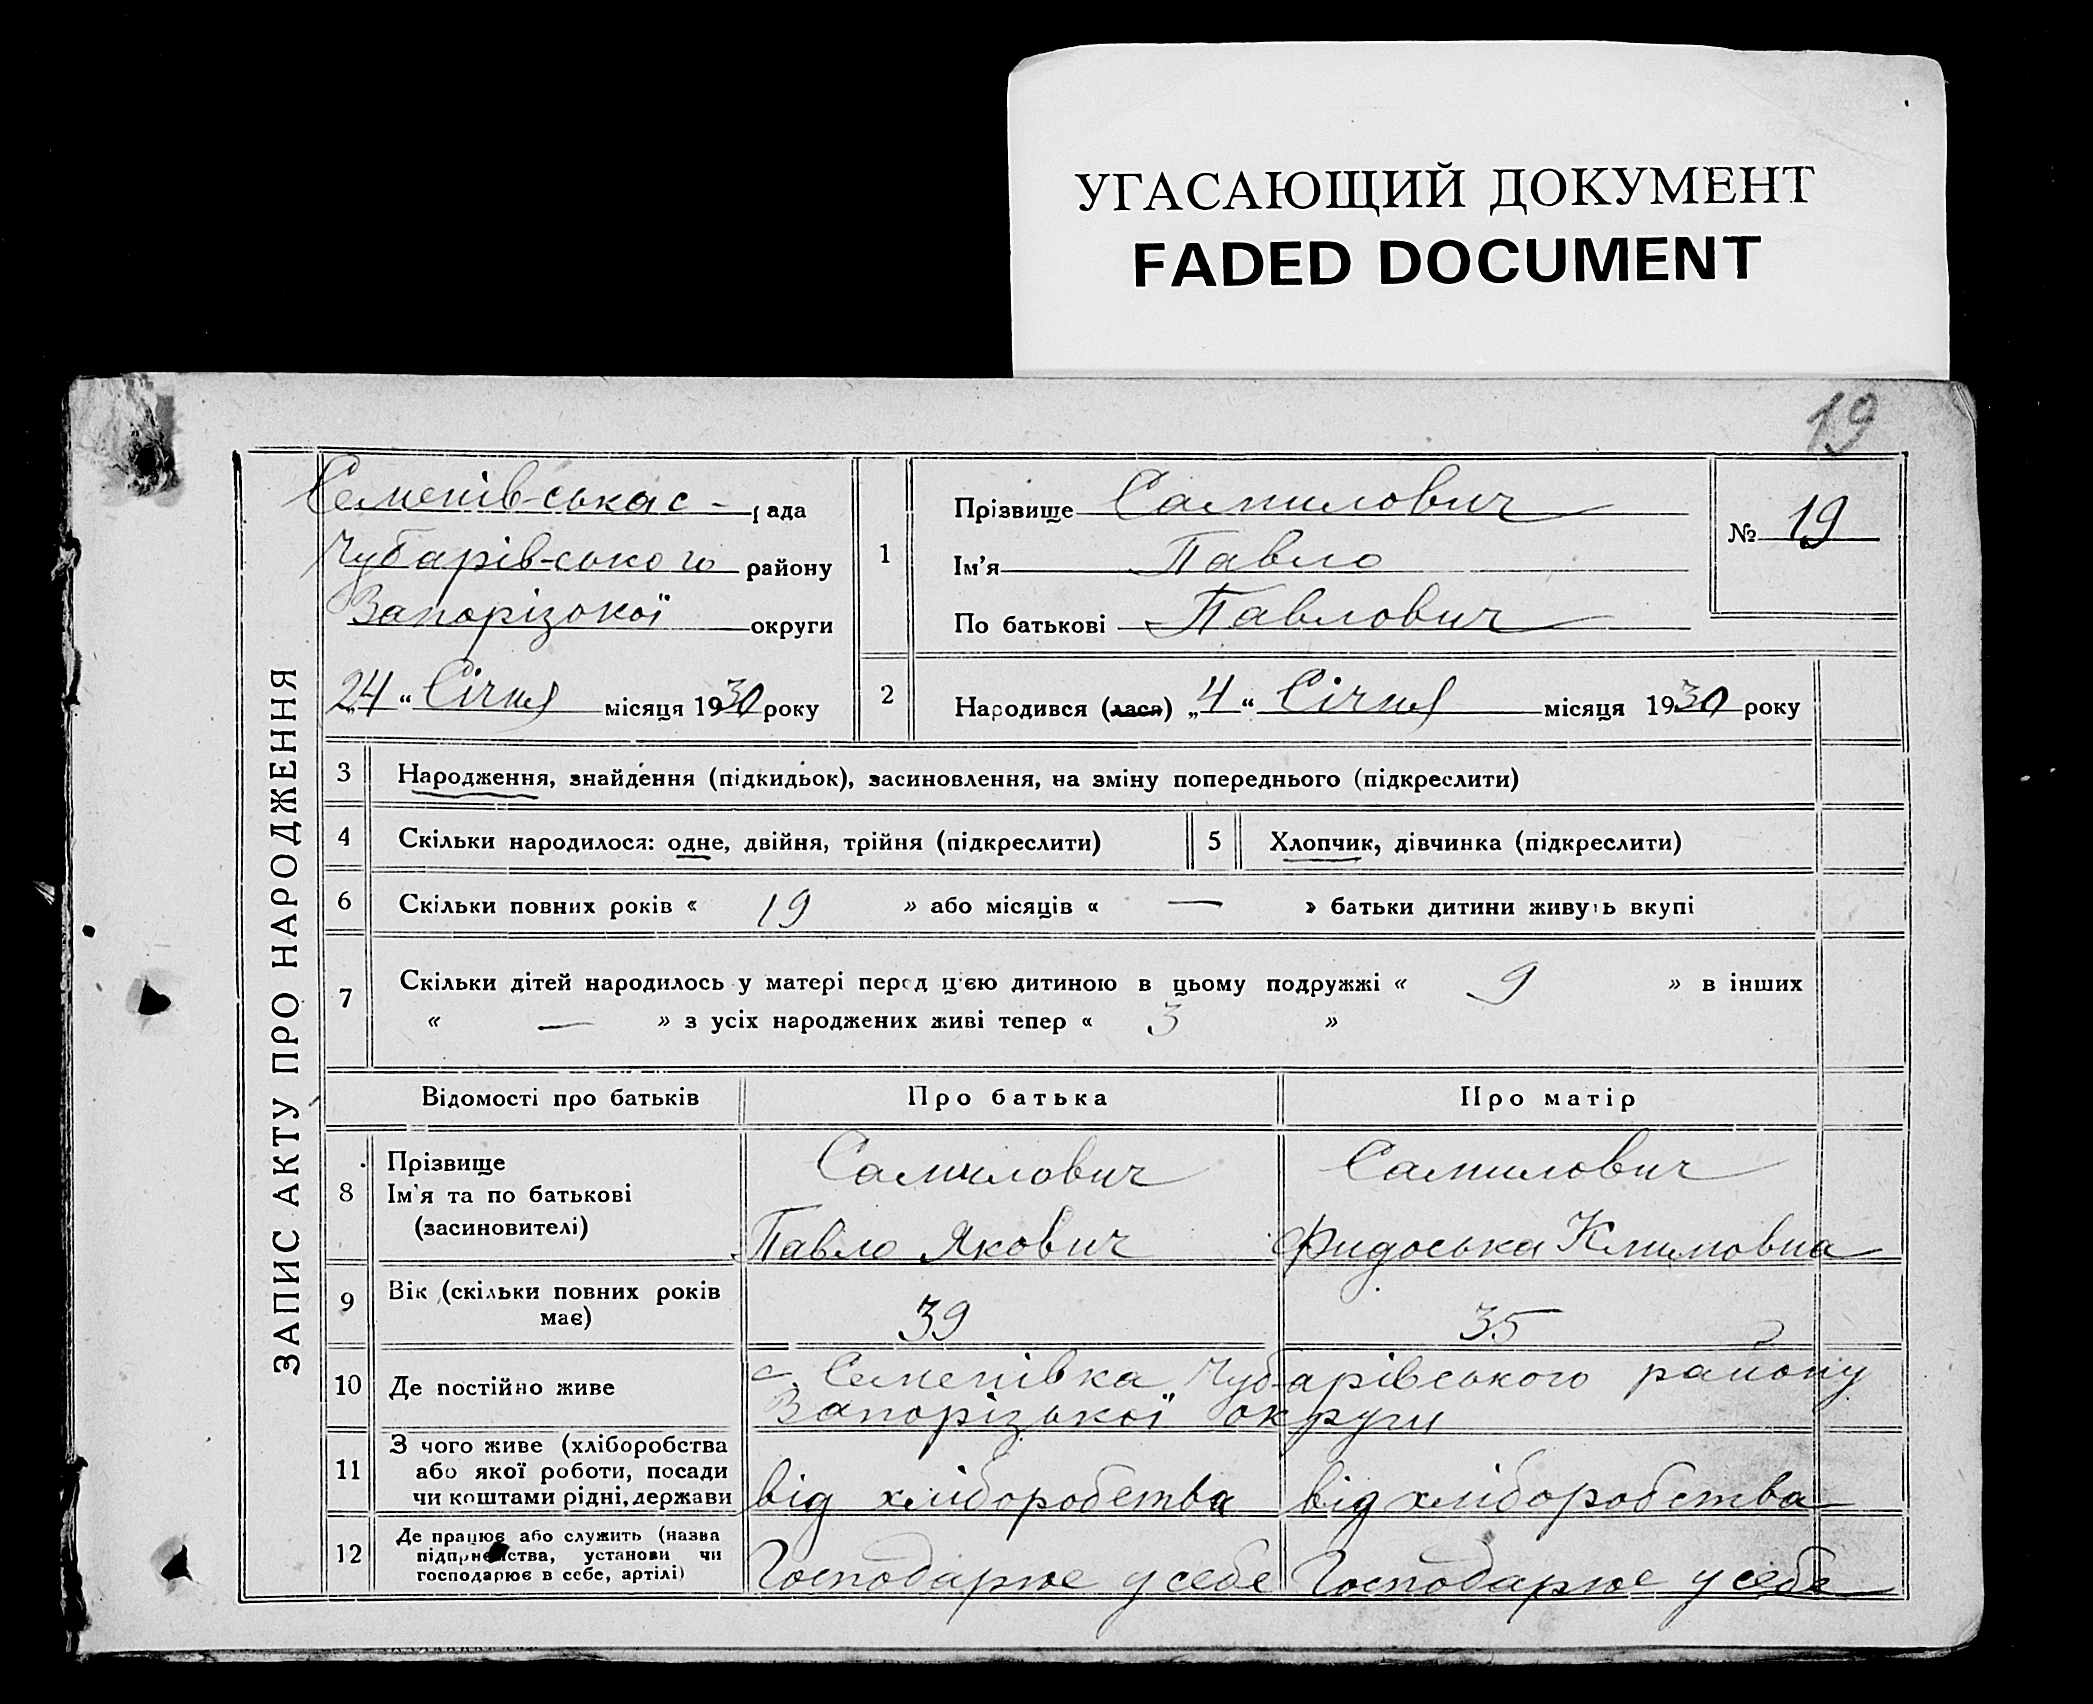 УГАСАЮЩИЙ ДОКУМЕНТ
FADED DOCUMENT
19
ЗАПИС АКТУ ПРО НАРОДЖЕННЯ
Семенівська с- рада
Чубарівського району
Запорізької округи
„24“ Січня місяця 1930 року
1
Прізвище Самилович
Ім'я Павло
По батькові Павлович
№ 19
2 Народився (лася) „4“ Січня місяця 1930 року
3 Народження, знайдення (підкидьок), засиновлення, на зміну попереднього (підкреслити)
4 Скільки народилося: одне, двійня, трійня (підкреслити) 5 Хлопчик, дівчинка (підкреслити)
6 Скільки повних років « 19 » або місяців « — » батьки дитини живуть вкупі
7 Скільки дітей народилось у матері перед ц'єю дитиною в цьому подружжі « 9 » в інших
« — » з усіх народжених живі тепер « 3 »
Відомості про батьків Про батька Про матір
8 Прізвище Самилович Самилович
Ім'я та по батькові
(засиновителі) Павло Якович Фидоська Климовна
9 Вік (скільки повних років
має) 39 35
10 Де постійно живе с. Семенівка Чубарівського району
Запорізької округи
11 З чого живе (хліборобства
або якої роботи, посади
чи коштами рідні, держави від хліборобства від хліборобства
12 Де працює або служить (назва
підприємства, установи чи
господарює в себе, артілі) Господарює у себе Господарює у себе